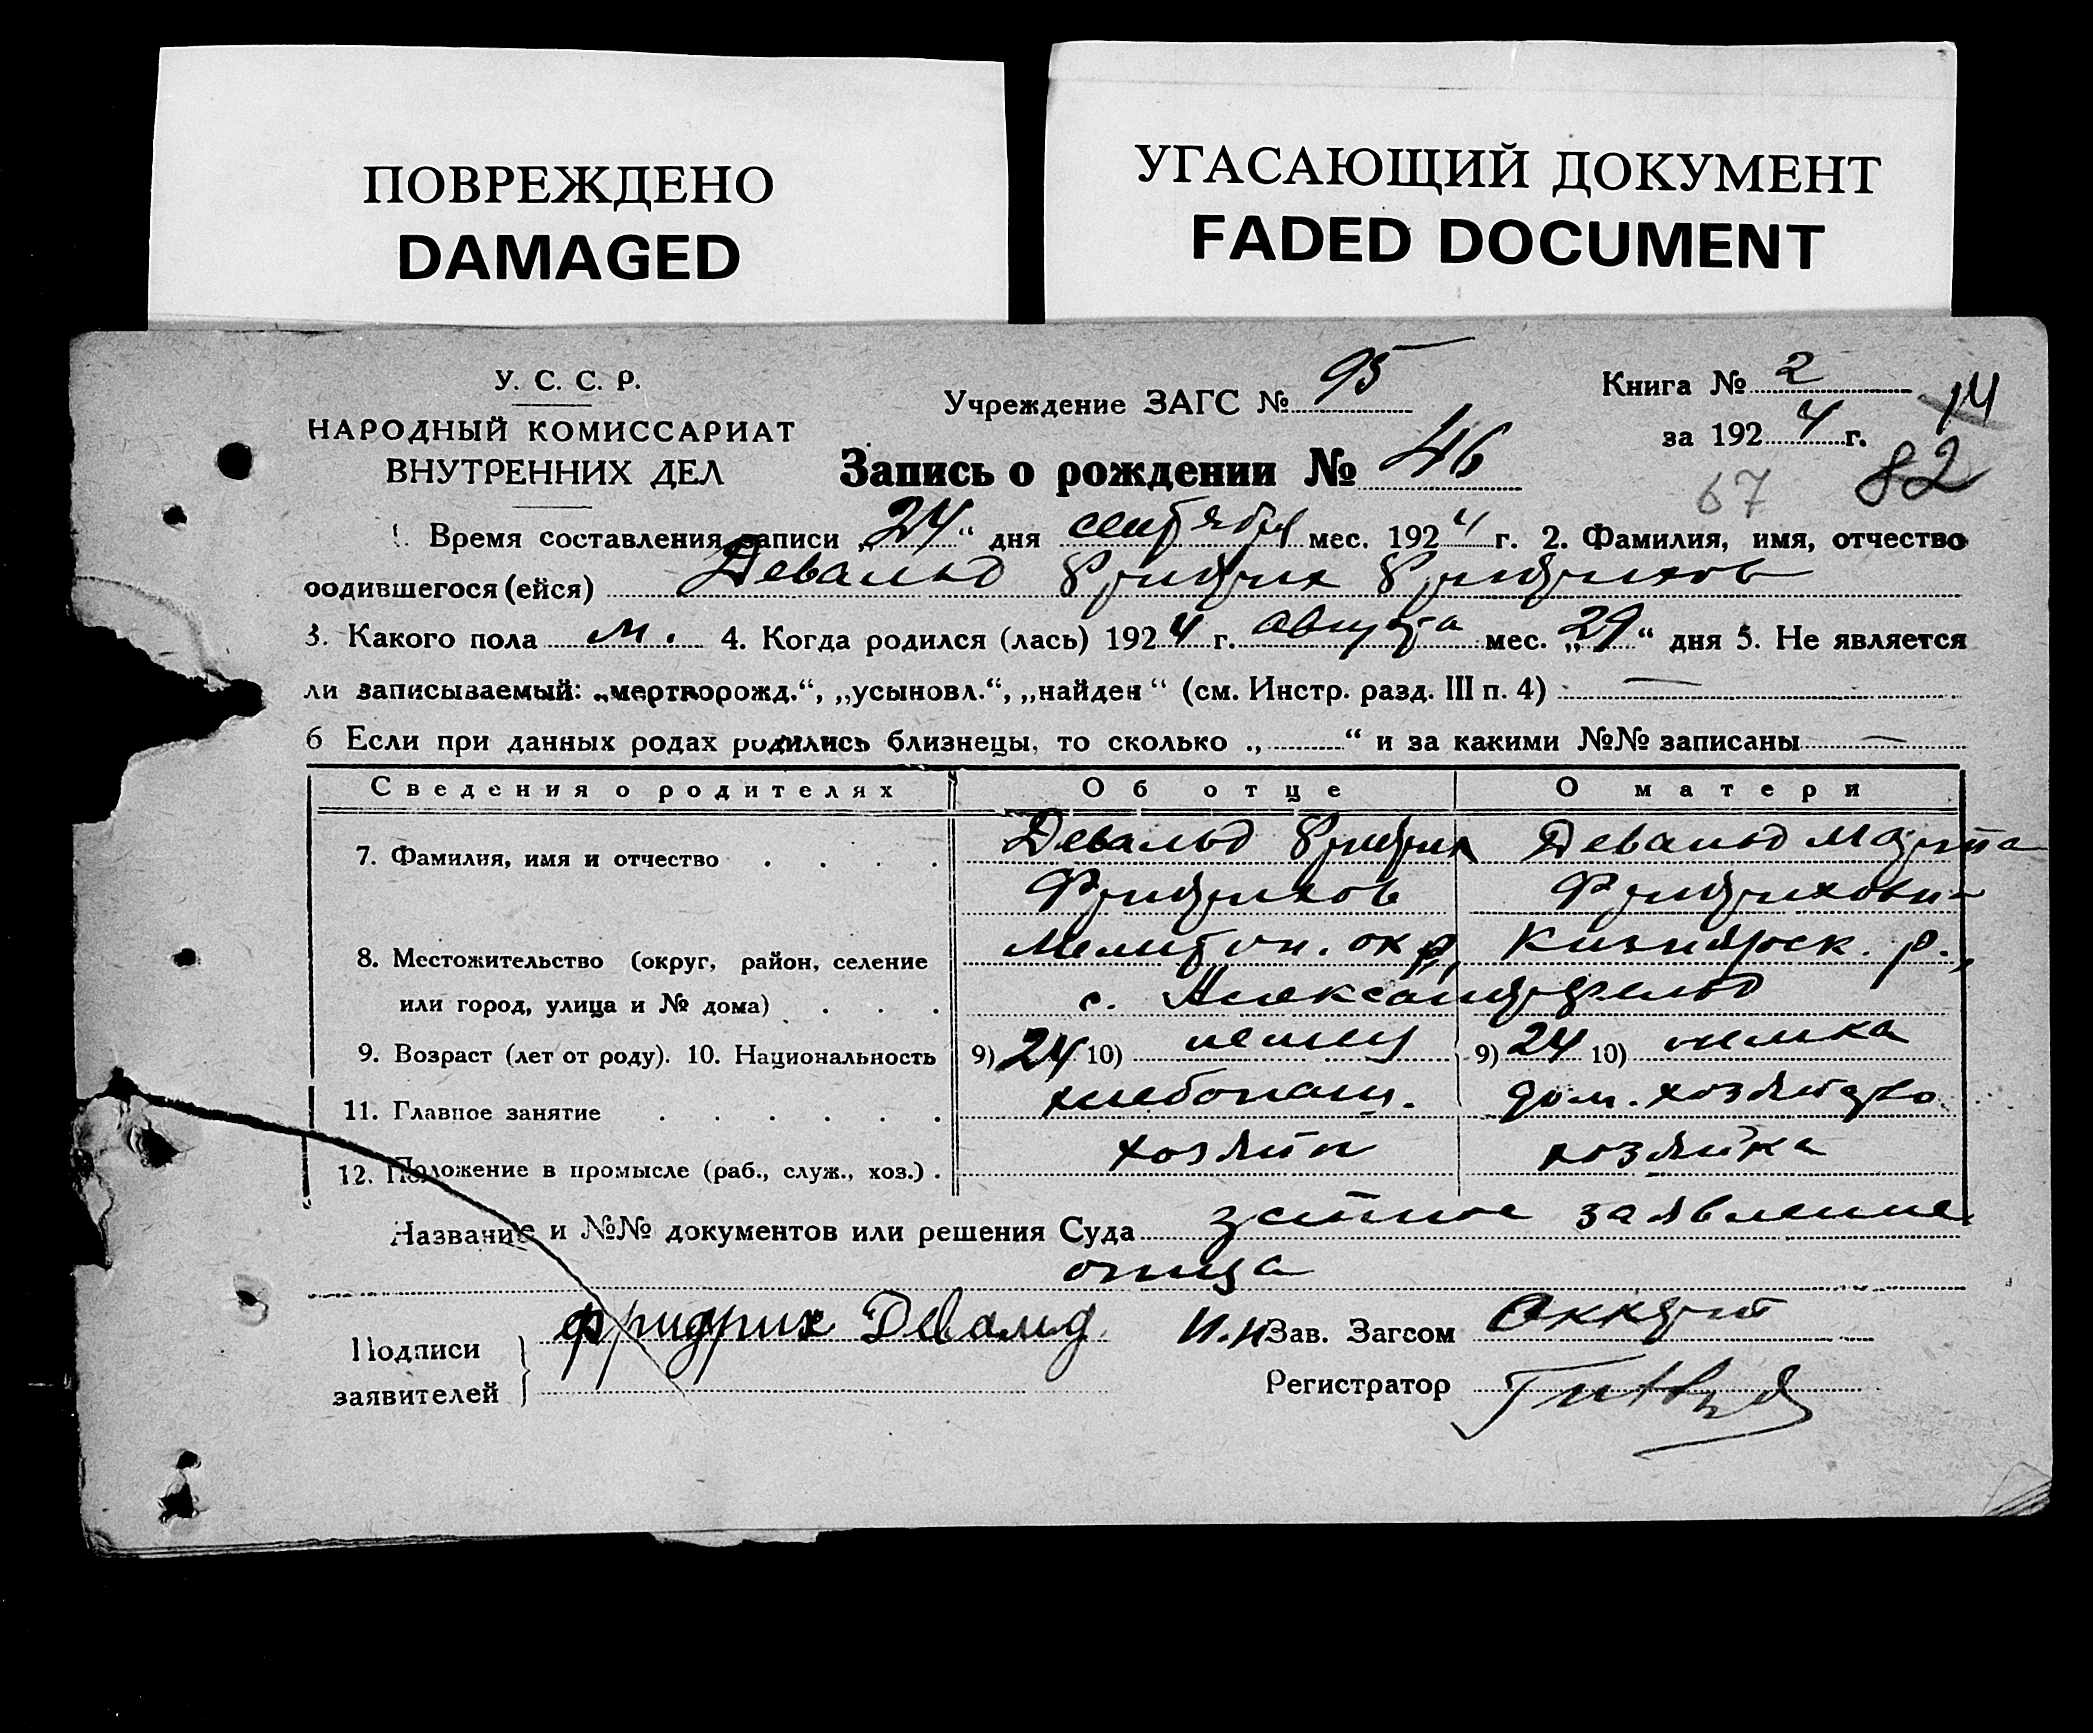 ПОВРЕЖДЕНО
DAMAGED
УГАСАЮЩИЙ ДОКУМЕНТ
FADED DOCUMENT
У. С. С. Р.
НАРОДНЫЙ КОМИССАРИАТ
ВНУТРЕННИХ ДЕЛ
Учреждение ЗАГС № 95
Книга № 2
14
за 1924 г.
Запись о рождении № 46
67 82
1. Время составления записи „24“ дня сентября мес. 1924 г. 2. Фамилия, имя, отчество
родившегося (ейся) Девальд Фридрих Фридрихов
3. Какого пола м. 4. Когда родился (лась) 1924 г. августа мес. „29“ дня 5. Не является
ли записываемый: „мертворожд.“, „усыновл.“, „найден“ (см. Инстр. разд. III п. 4) —
6 Если при данных родах родились близнецы, то сколько „ “ и за какими №№ записаны —
Сведения о родителях Об отце О матери
7. Фамилия, имя и отчество Девальд Фридрих Девальд Марта
Фридрихов Фридриховн
8. Местожительство (округ, район, селение Мелитоп. окр., Кизиярск. р.,
или город, улица и № дома) с. Александрфельд
9. Возраст (лет от роду). 10. Национальность 9) 24 10) немец 9) 24 10) немка
11. Главное занятие хлебопаш. дом. хозяйство
12. Положение в промысле (раб., служ., хоз.) хозяин хозяйка
Название и №№ документов или решения Суда устное заявление
отца
Подписи
заявителей
Фридрих Девальд
И.н. Зав. Загсом
Регистратор